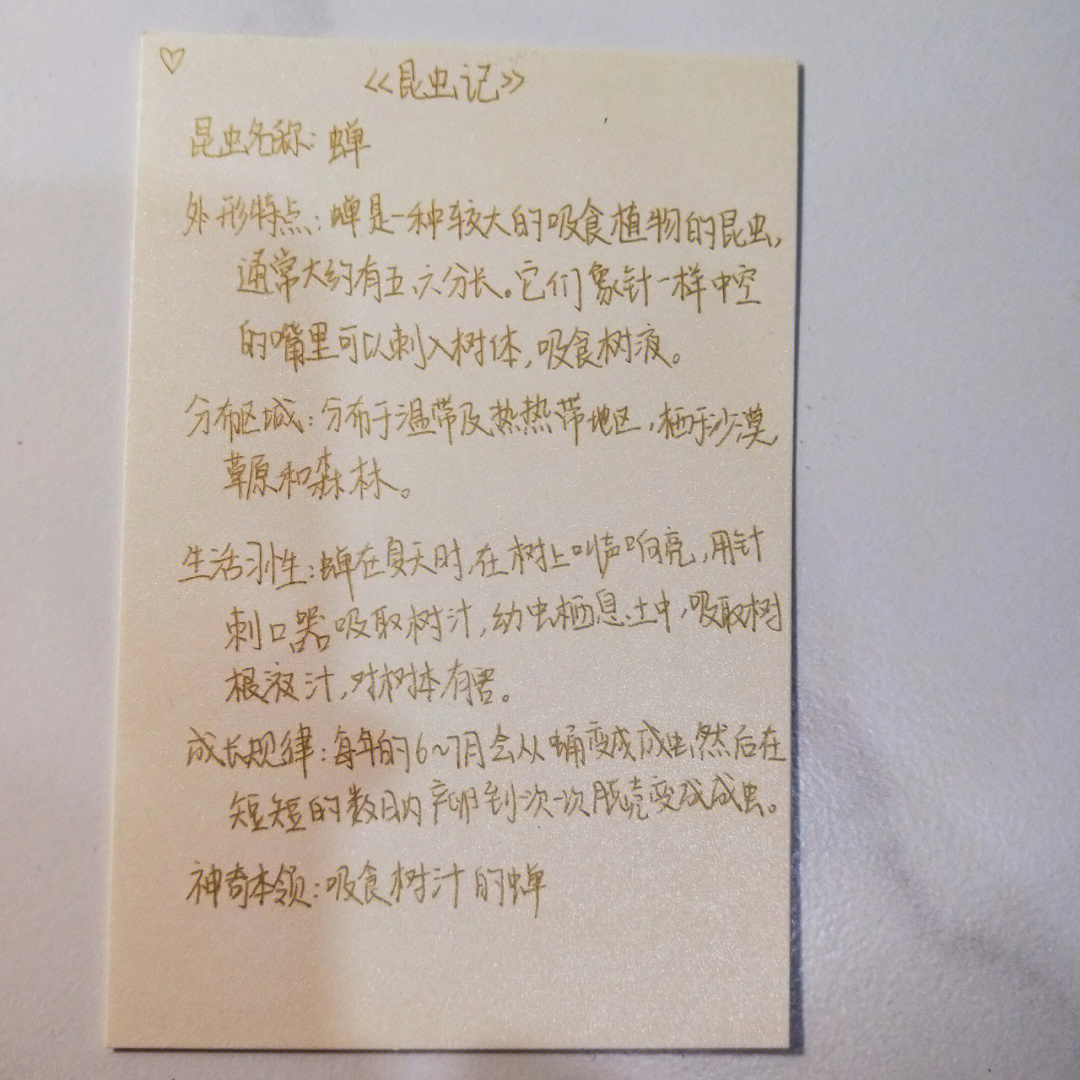 《昆虫记》
昆虫名称：蝉
外形特点：蝉是一种较大的吸食植物的昆虫，
通常大约有五、六分长。它们象针一样中空
的嘴里可以刺入树体，吸食树液。
分布区域：分布于温带及热热带地区，栖于沙漠，
草原和森林。
生活习性：蝉在夏天时，在树上叫声响亮，用针
刺口器吸取树汁，幼虫栖息土中，吸取树
根液汁，对树木有害。
成长规律：每年的6~7月会从蛹变成成虫，然后在
短短的数日内产卵到一次一次脱壳变成成虫。
神奇本领：吸食树汁的蝉